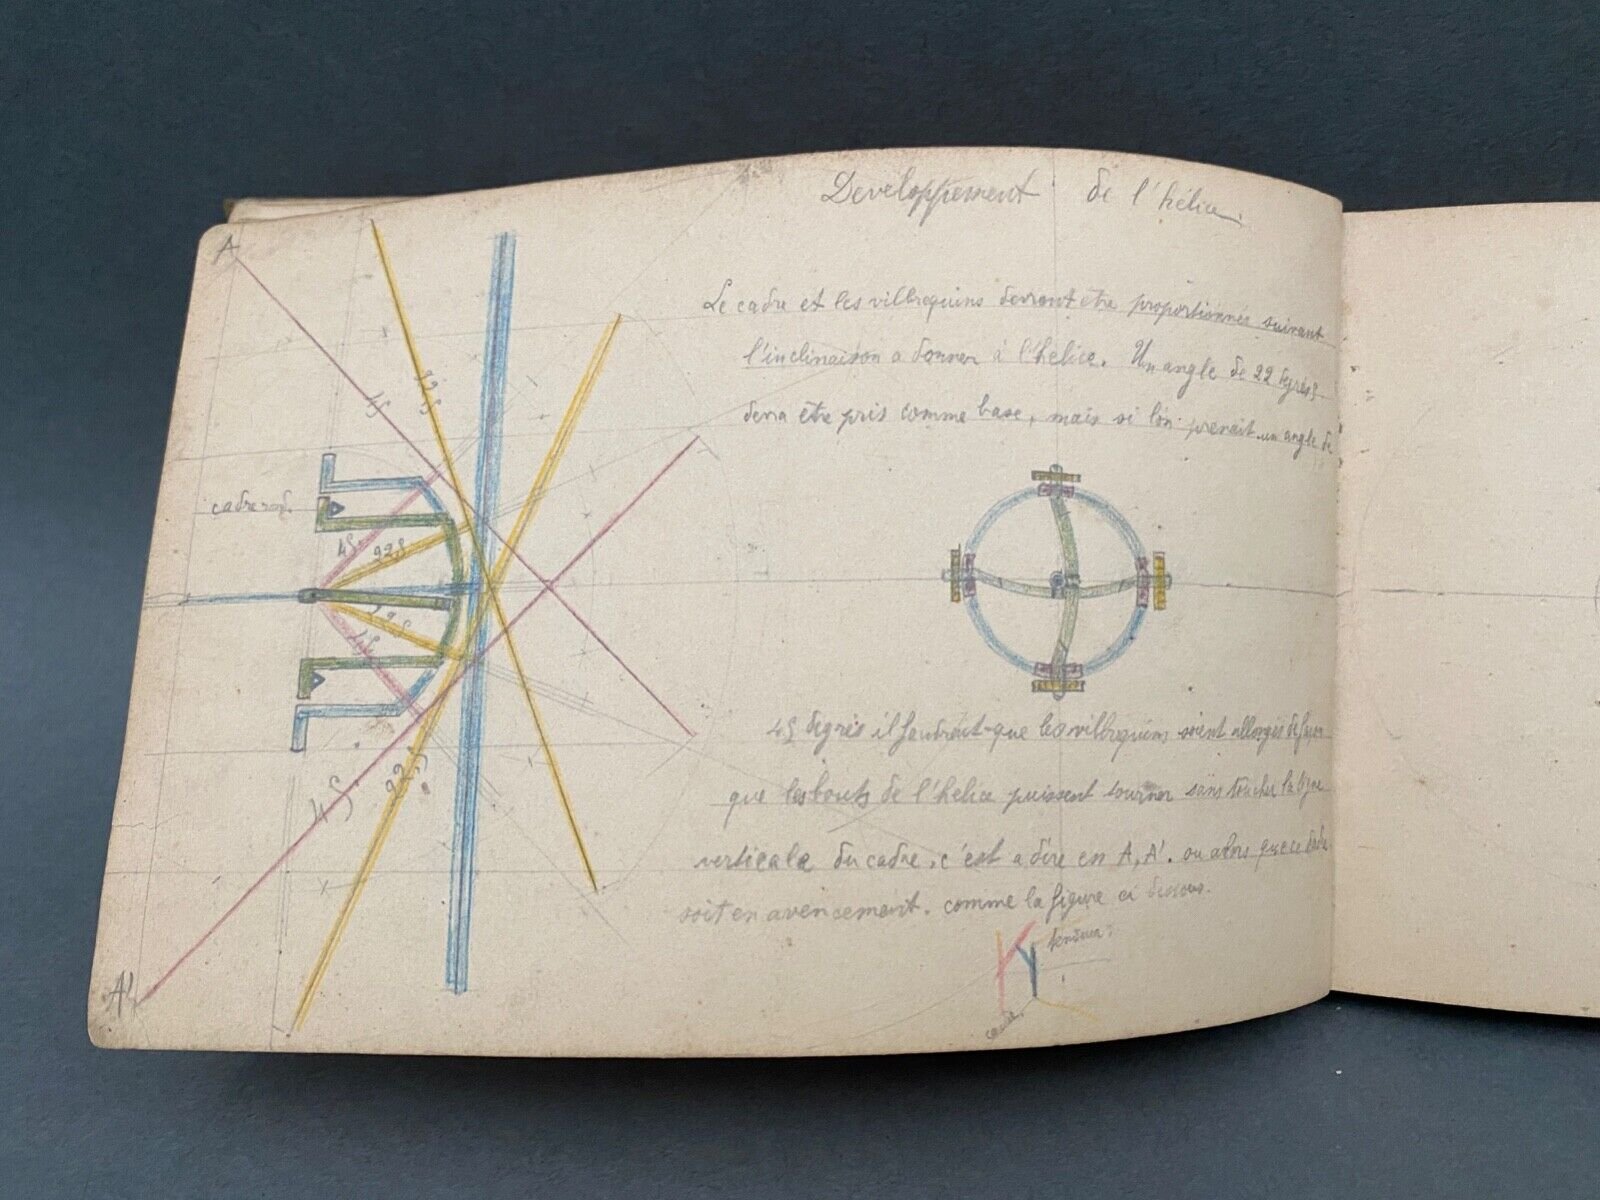 Developpement de l'hélice.
A
Le cadre et les villbrequins devront etre proportionnés suivant
l'inclinaison a donner à l'hélice. Un angle de 22 degrés 5
devra etre pris comme base, mais si l'on prenait un angle de
22,5
45
cadre
45
22,5
22,5
45
45 degrés il faudrait que les villbrequins soient allongés de façon
22,5
45
que les bouts de l'hélice puissent tourner sans toucher la ligne
verticale du cadre, c'est a dire en A, A'. ou alors que ce cadre
soit en avencement. comme la figure ci dessous.
A'